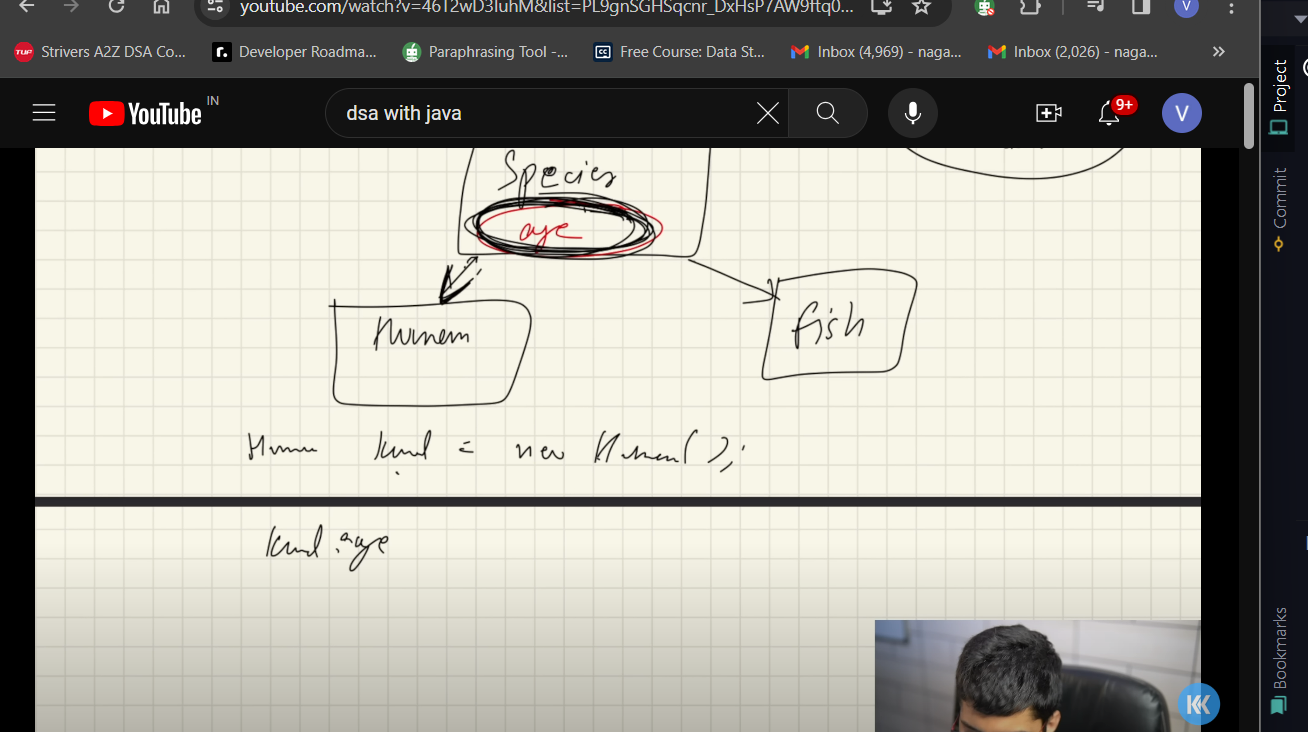 youtube.com/watch?v=46T2wD3IuhM&list=PL9gnSGHSqcnr_DxHsP7AW9ftq0...
V
Strivers A2Z DSA Co... Developer Roadma... Paraphrasing Tool -... Free Course: Data St... Inbox (4,969) - naga... Inbox (2,026) - naga... »
YouTube IN
dsa with java
9+
V
Project
Commit
Bookmarks
Species
age
Human
fish
Human kunal = new Human();
kunal.age